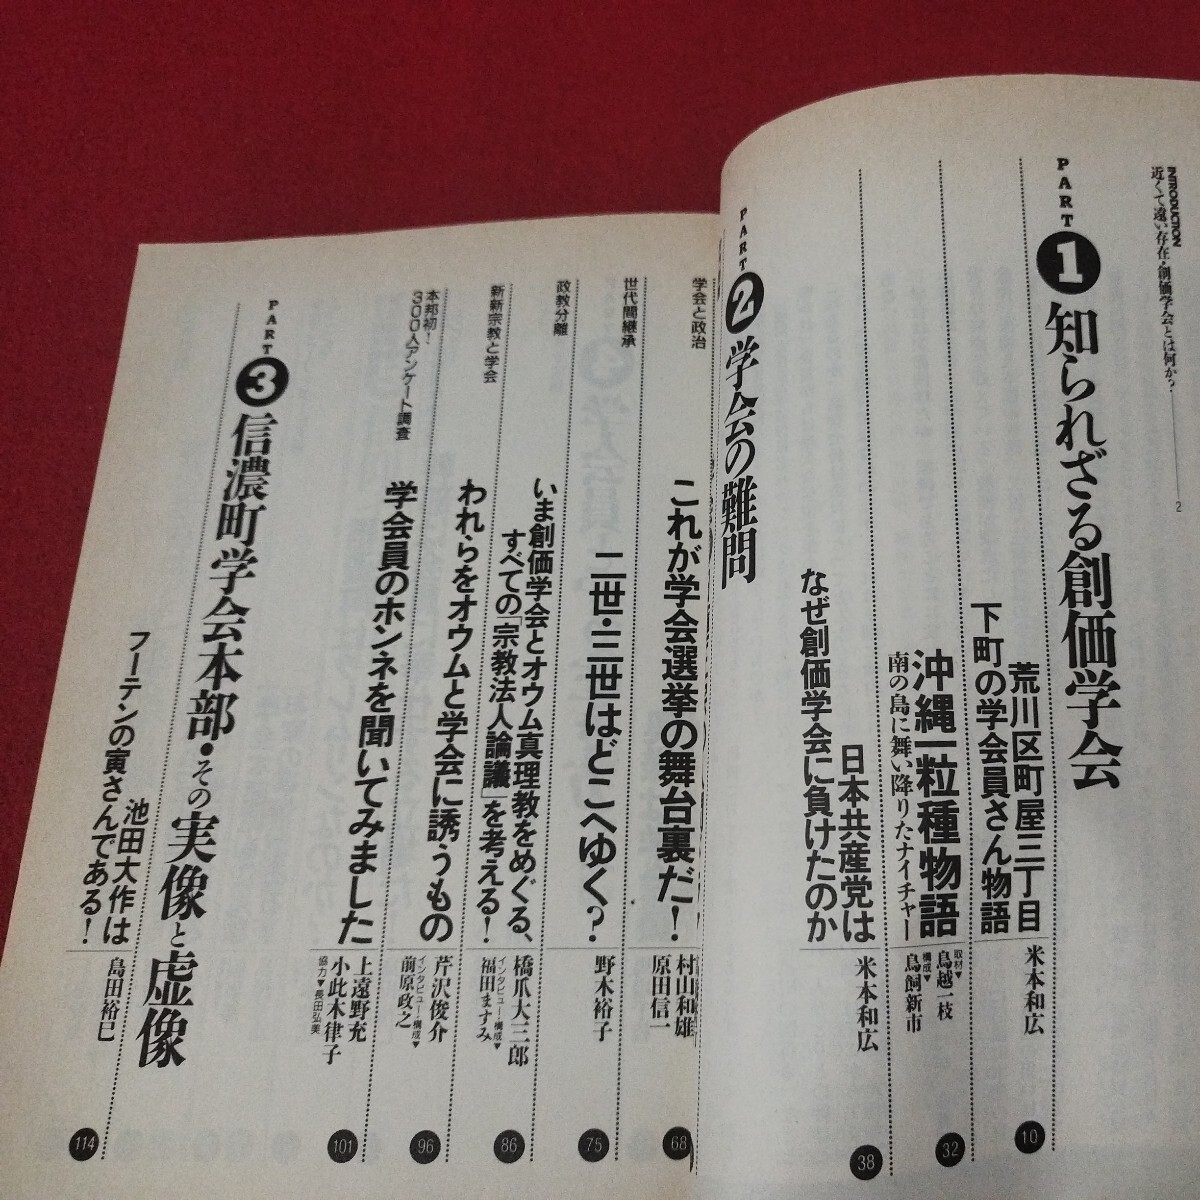 INTRODUCTION
近くて遠い存在・創価学会とは何か?
2
PART 1 知られざる創価学会
荒川区町屋三丁目
下町の学会員さん物語
米本和広
10
沖縄一粒種物語
南の島に舞い降りたナイチャー
取材▼鳥越一枝
構成▼鳥飼新市
32
日本共産党は
なぜ創価学会に負けたのか
米本和広
38
PART 2 学会の難問
学会と政治
これが学会選挙の舞台裏だ!
村山和雄
原田信一
68
世代間継承
二世・三世はどこへゆく?
野木裕子
75
政教分離
いま創価学会とオウム真理教をめぐる、
すべての「宗教法人論議」を考える!
橋爪大三郎
インタビュー・構成▼
福田ますみ
86
新新宗教と学会
われらをオウムと学会に誘うもの
芹沢俊介
インタビュー・構成▼
前原政之
96
本邦初!
300人アンケート調査
学会員のホンネを聞いてみました
上遠野充
小此木律子
協力▼長田弘美
101
PART 3 信濃町学会本部・その実像と虚像
池田大作は
フーテンの寅さんである!
島田裕巳
114